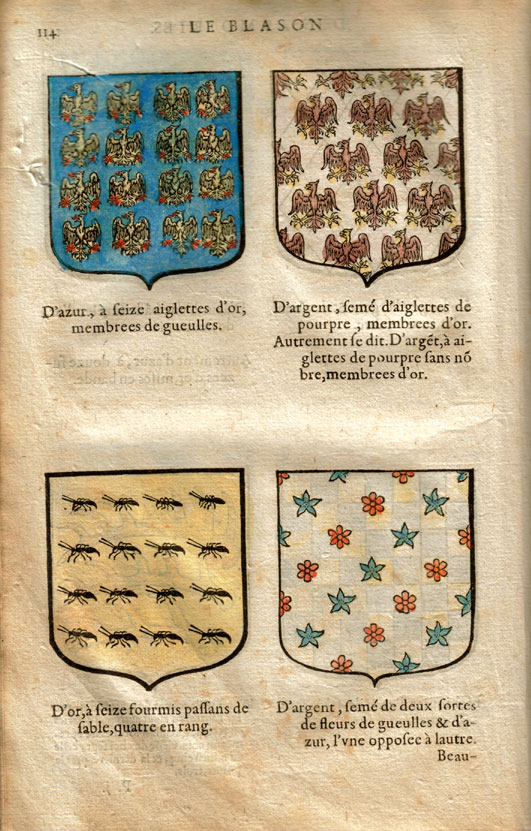 114
LE BLASON
D'azur, à ſeize aiglettes d'or,
membrees de gueulles.
D'argent, ſemé d'aiglettes de
pourpre, membrees d'or.
Autrement ſe dit. D'argẽt, à ai-
glettes de pourpre ſans nõ
bre, membrees d'or.
D'or, à ſeize fourmis paſſans de
ſable, quatre en rang.
D'argent, ſemé de deux ſortes
de fleurs de gueulles & d'a-
zur, l'vne oppoſee à lautre.
Beau-